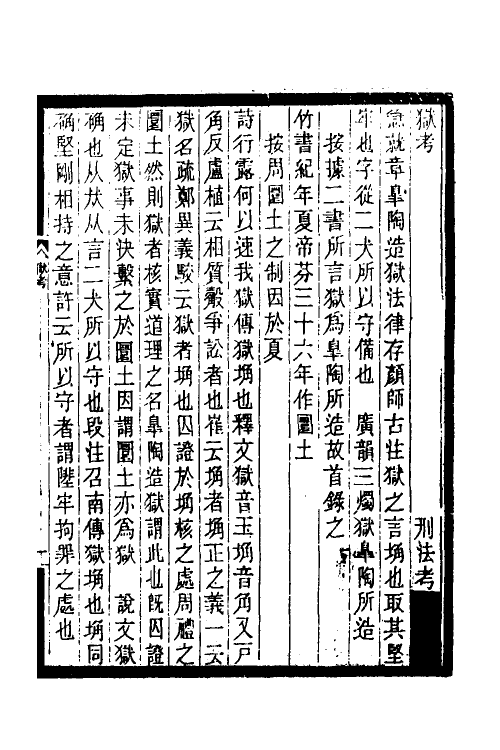 獄考　刑法考
急就章皐陶造獄法律存顏師古注獄之言埆也取其堅
牢也字從二犬所以守備也　廣韻三燭獄皐陶所造
按據二書所言獄爲皐陶所造故首錄之
竹書紀年夏帝芬三十六年作圜土
按周圜土之制因於夏
詩行露何以速我獄傳獄埆也釋文獄音玉埆音角又戸
角反盧植云相質觳爭訟者也崔云埆者埆正之義一云
獄名疏鄭異義駁云獄者埆也囚證於埆核之處周禮之
圜土然則獄者核實道理之名皐陶造獄謂此也旣囚證
未定獄事未決繫之於圜土因謂圜土亦爲獄　說文獄
确也从㹜从言二犬所以守也段注召南傳獄埆也埆同
确堅剛相持之意許云所以守者謂陛牢拘罪之處也
獄考